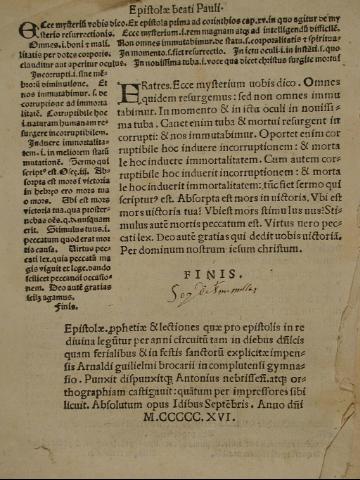 Epistolæ beati Pauli.
Ecce mysteriũ vobis dico. Ex epistola prima ad corinthios cap. xv. in quo agitur de my
sterio resurrectionis. Ecce mysterium. i. rem magnam atqȝ ad intelligendũ difficilẽ.
Omnes. i. boni z mali. Non omnes immutabimur. de statu. s. corporalitatis z spiritua-
lis per dotes corporis. In momento. s. fiet resurrectio. In ictu oculi. i. in instãti. i. quo
clauditur aut aperitur oculus. In nouissima tuba. i. voce qua dicet christus surgite mortui
Incorrupti. i. sine mẽ-
brorũ diminutione. Et
nos immutabimur. s. de
corruptione ad immorta
litatẽ. Corruptibile hoc
i. naturam humanam re-
surgere incorruptibilem.
Induere immortalita-
tem. i. in meliorem statũ
mutationẽ. Sermo qui
scriptꝰ est. Osee. iij. Ab-
sorpta est mors i victoria
in hebreo ero mors tua
o mors. Ubi est mors
victoria tua. qua poster-
nebas oẽs. q.d. nusquam
erit. Stimulus tuus. i.
peccatum quod erat mor
tis causa. Virtus pec-
cati lex. quia peccatũ ma
gis viguit ex lege. dando
scilicet peccandi occasio-
nem. Deo autẽ gratias
scilȝ agamus.
Finis.
FRatres. Ecce mysterium uobis dico. Omnes
quidem resurgemus: sed non omnes immu
tabimur. In momento & in ictu oculi in nouissi-
ma tuba. Canet enim tuba & mortui resurgent in
corrupti: & nos immutabimur. Oportet enim cor
ruptibile hoc induere incorruptionem: & morta
le hoc induere immortalitatem. Cum autem cor-
ruptibile hoc induerit incorruptionem: & morta
le hoc induerit immortalitatem: tũc fiet sermo qui
scripturꝰ est. Absorpta est mors in uictoria. Vbi est
mors uictoria tua? Vbi est mors stimulus tuus: Sti
mulus autẽ mortis peccatum est. Virtus uero pec-
cati lex. Deo autẽ gratias qui dedit uobis uictoriã.
Per dominum nostrum iesum christum.
FINIS.
Epistolæ. ꝓphetiæ & lectiones quæ pro epistolis in re
diuina legũtur per anni circuitũ tam in diebus dñicis
quam ferialibus & in festis sanctorũ explicitæ impen-
sis Arnaldi guilielmi brocarii in complutensi gymna-
sio. Punxit dispunxitqȝ Antonius nebrissen̄. atqȝ or-
thographiam castigauit: quãtum per impressores sibi
licuit. Absolutum opus Idibus Septẽbris. Anno dñi
M.CCCCC.XVI.